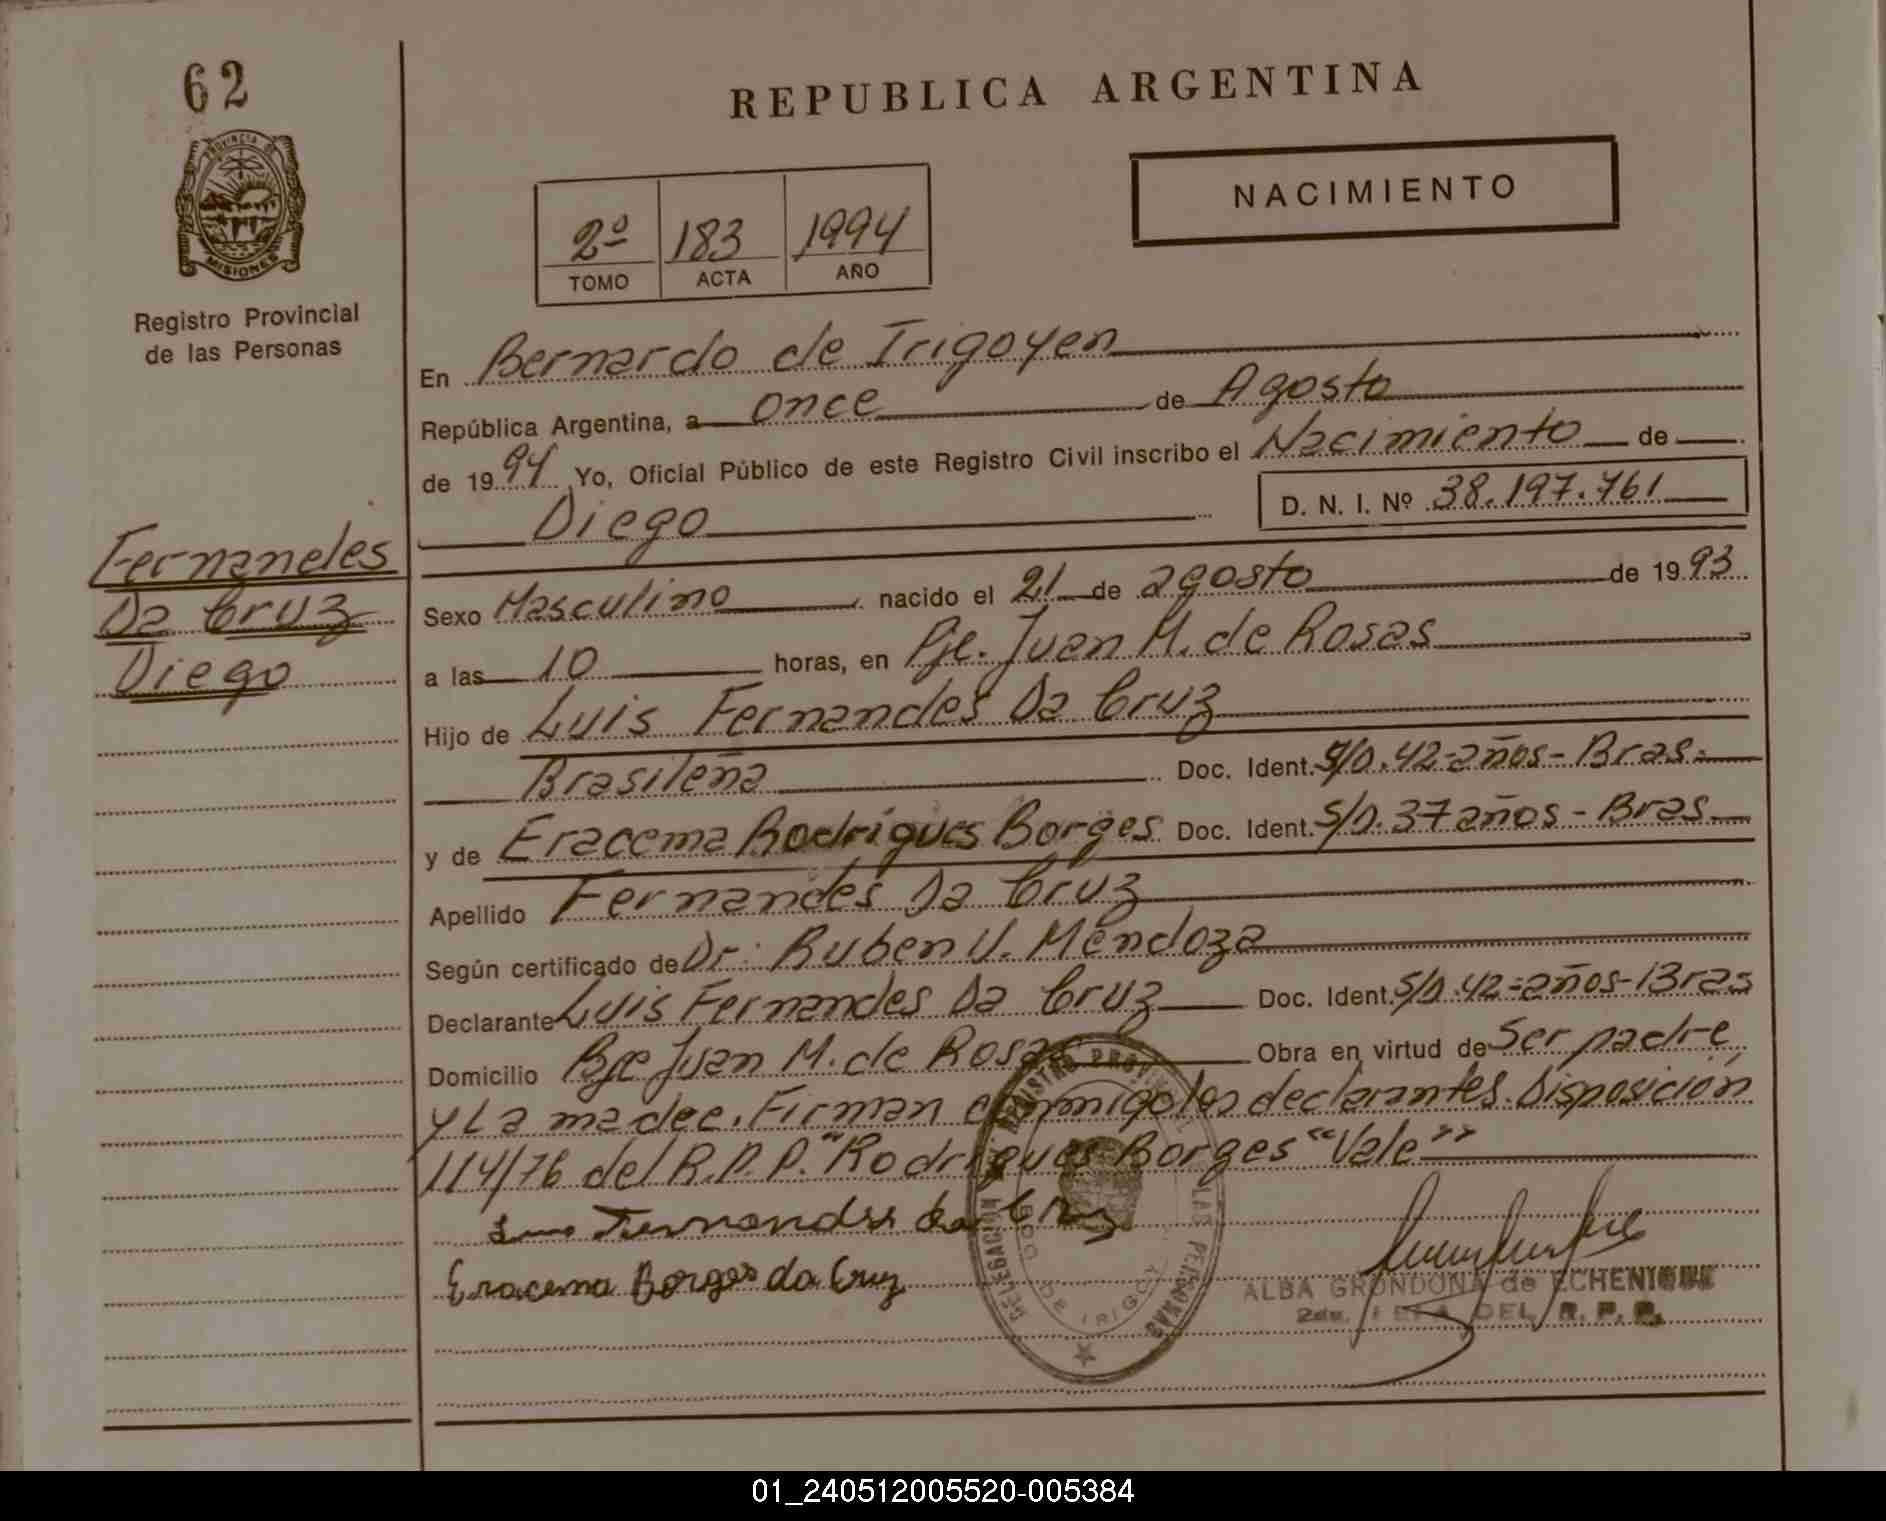 62
PROVINCIA DE
MISIONES
Registro Provincial
de las Personas
Fernandes
Da Cruz
Diego
REPUBLICA ARGENTINA
NACIMIENTO
2º 183 1994
TOMO ACTA AÑO
En Bernardo de Irigoyen
República Argentina, a once de Agosto
de 1994 Yo, Oficial Público de este Registro Civil inscribo el Nacimiento de
Diego D. N. I. Nº 38.197.761
Sexo Masculino nacido el 21 de agosto de 1993
a las 10 horas, en Pje. Juan M. de Rosas
Hijo de Luis Fernandes Da Cruz
Brasileña Doc. Ident. S/D. 42-años-Bras.
y de Eracema Rodrigues Borges Doc. Ident. S/D. 37 años - Bras.
Apellido Fernandes Da Cruz
Según certificado de Dr: Ruben V. Mendoza
Declarante Luis Fernandes Da Cruz Doc. Ident. S/D. 42=años-Bras
Domicilio Pje Juan M. de Rosas Obra en virtud de Ser padre
y La madre. Firman conmigo los declarantes. Disposición
114/76 del R.P.P. "Rodrigues Borges "Vale"
Fernandes da Cruz
Eracema Borges da Cruz
DELEGACION REGISTRO PROVINCIAL LAS PERSONAS
BDO DE IRIGOY
ALBA GRONDONA de ECHENIQUE
DEL R. P. P.
01_240512005520-005384